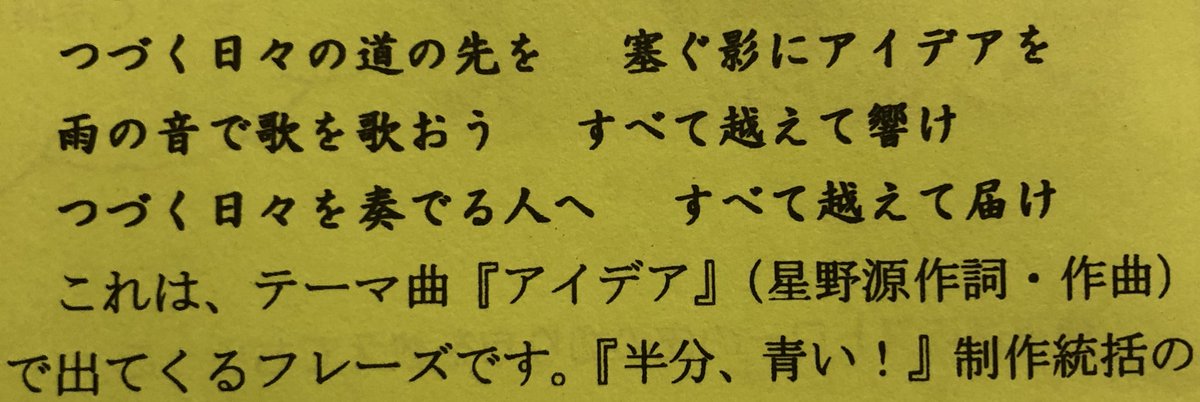 つづく日々の道の先を　塞ぐ影にアイデアを
雨の音で歌を歌おう　すべて越えて響け
つづく日々を奏でる人へ　すべて越えて届け
これは、テーマ曲『アイデア』（星野源作詞・作曲）
で出てくるフレーズです。『半分、青い！』制作統括の